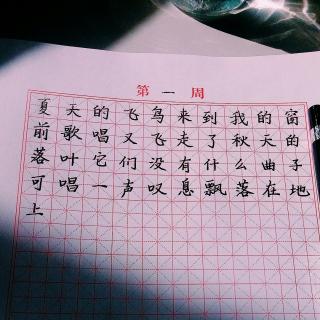 第一周
夏天的飞鸟来到我的窗
前歌唱又飞走了秋天的
落叶它们没有什么曲子
可唱一声叹息飘落在地
上